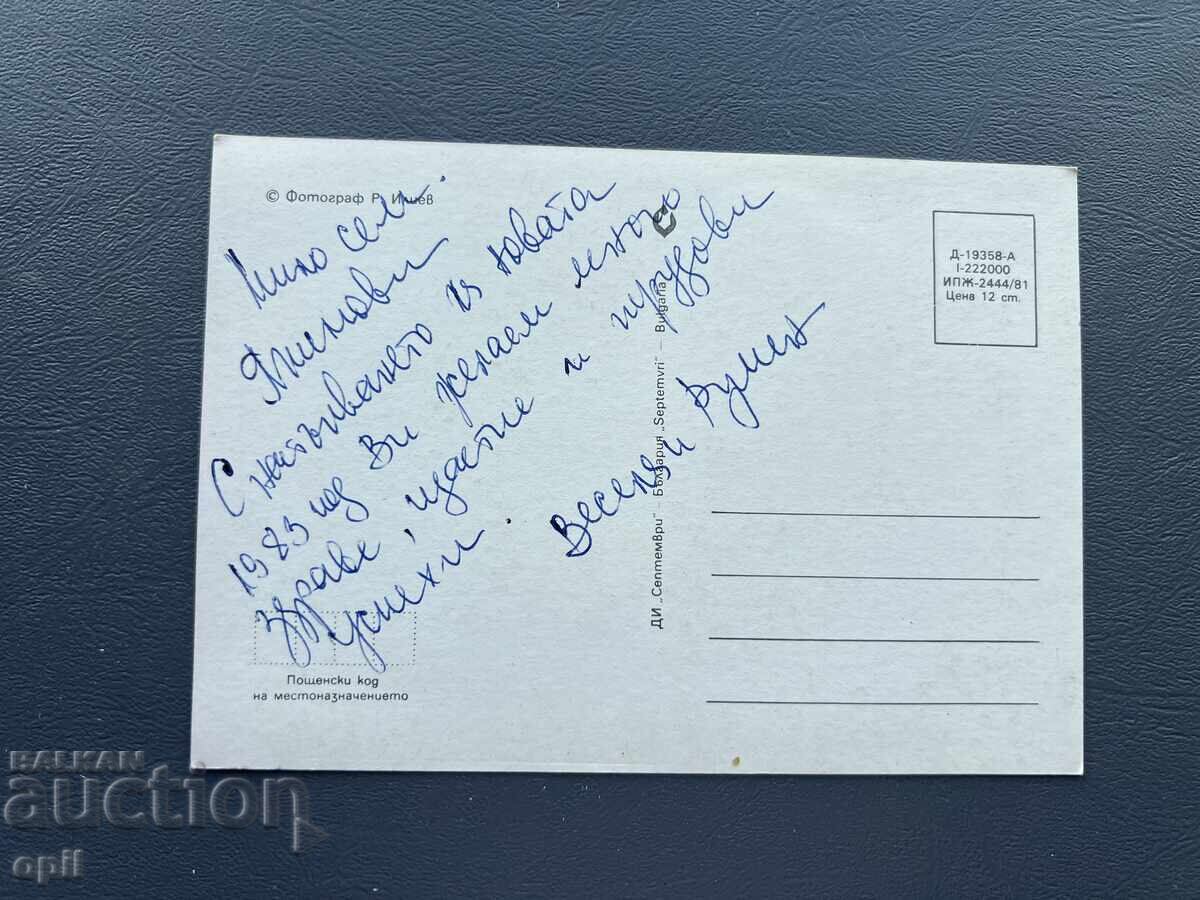 © Фотограф Р. Ишев
Мило сем.
С настъпването на Новата
1983 год Ви желаем много
здраве, щастие и трудови
успехи.
Веселей и Румен
ДИ „Септември" – България „Septemvri" – Bulgaria
Д-19358-А
I-222000
ИПЖ-2444/81
Цена 12 ст.
Пощенски код
на местоназначението
BALKAN
auction
opil